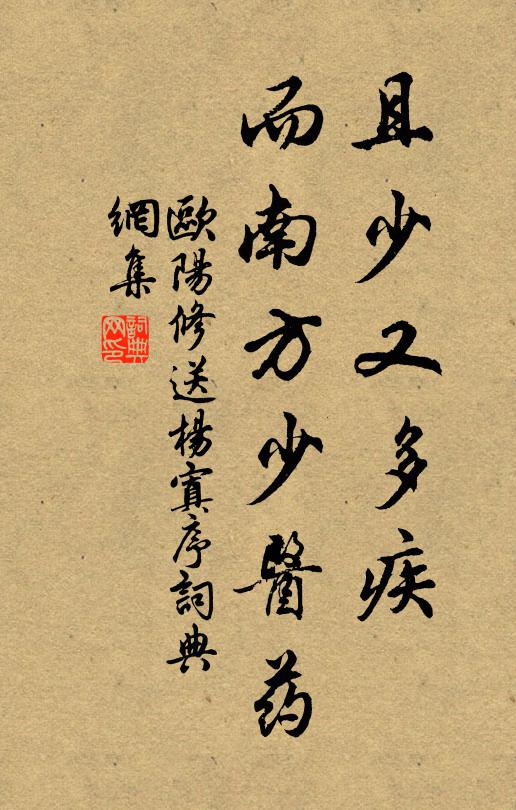 且少又多疾
而南方少醫药
歐陽修送楊寘序詞典
網集
詞典
网印